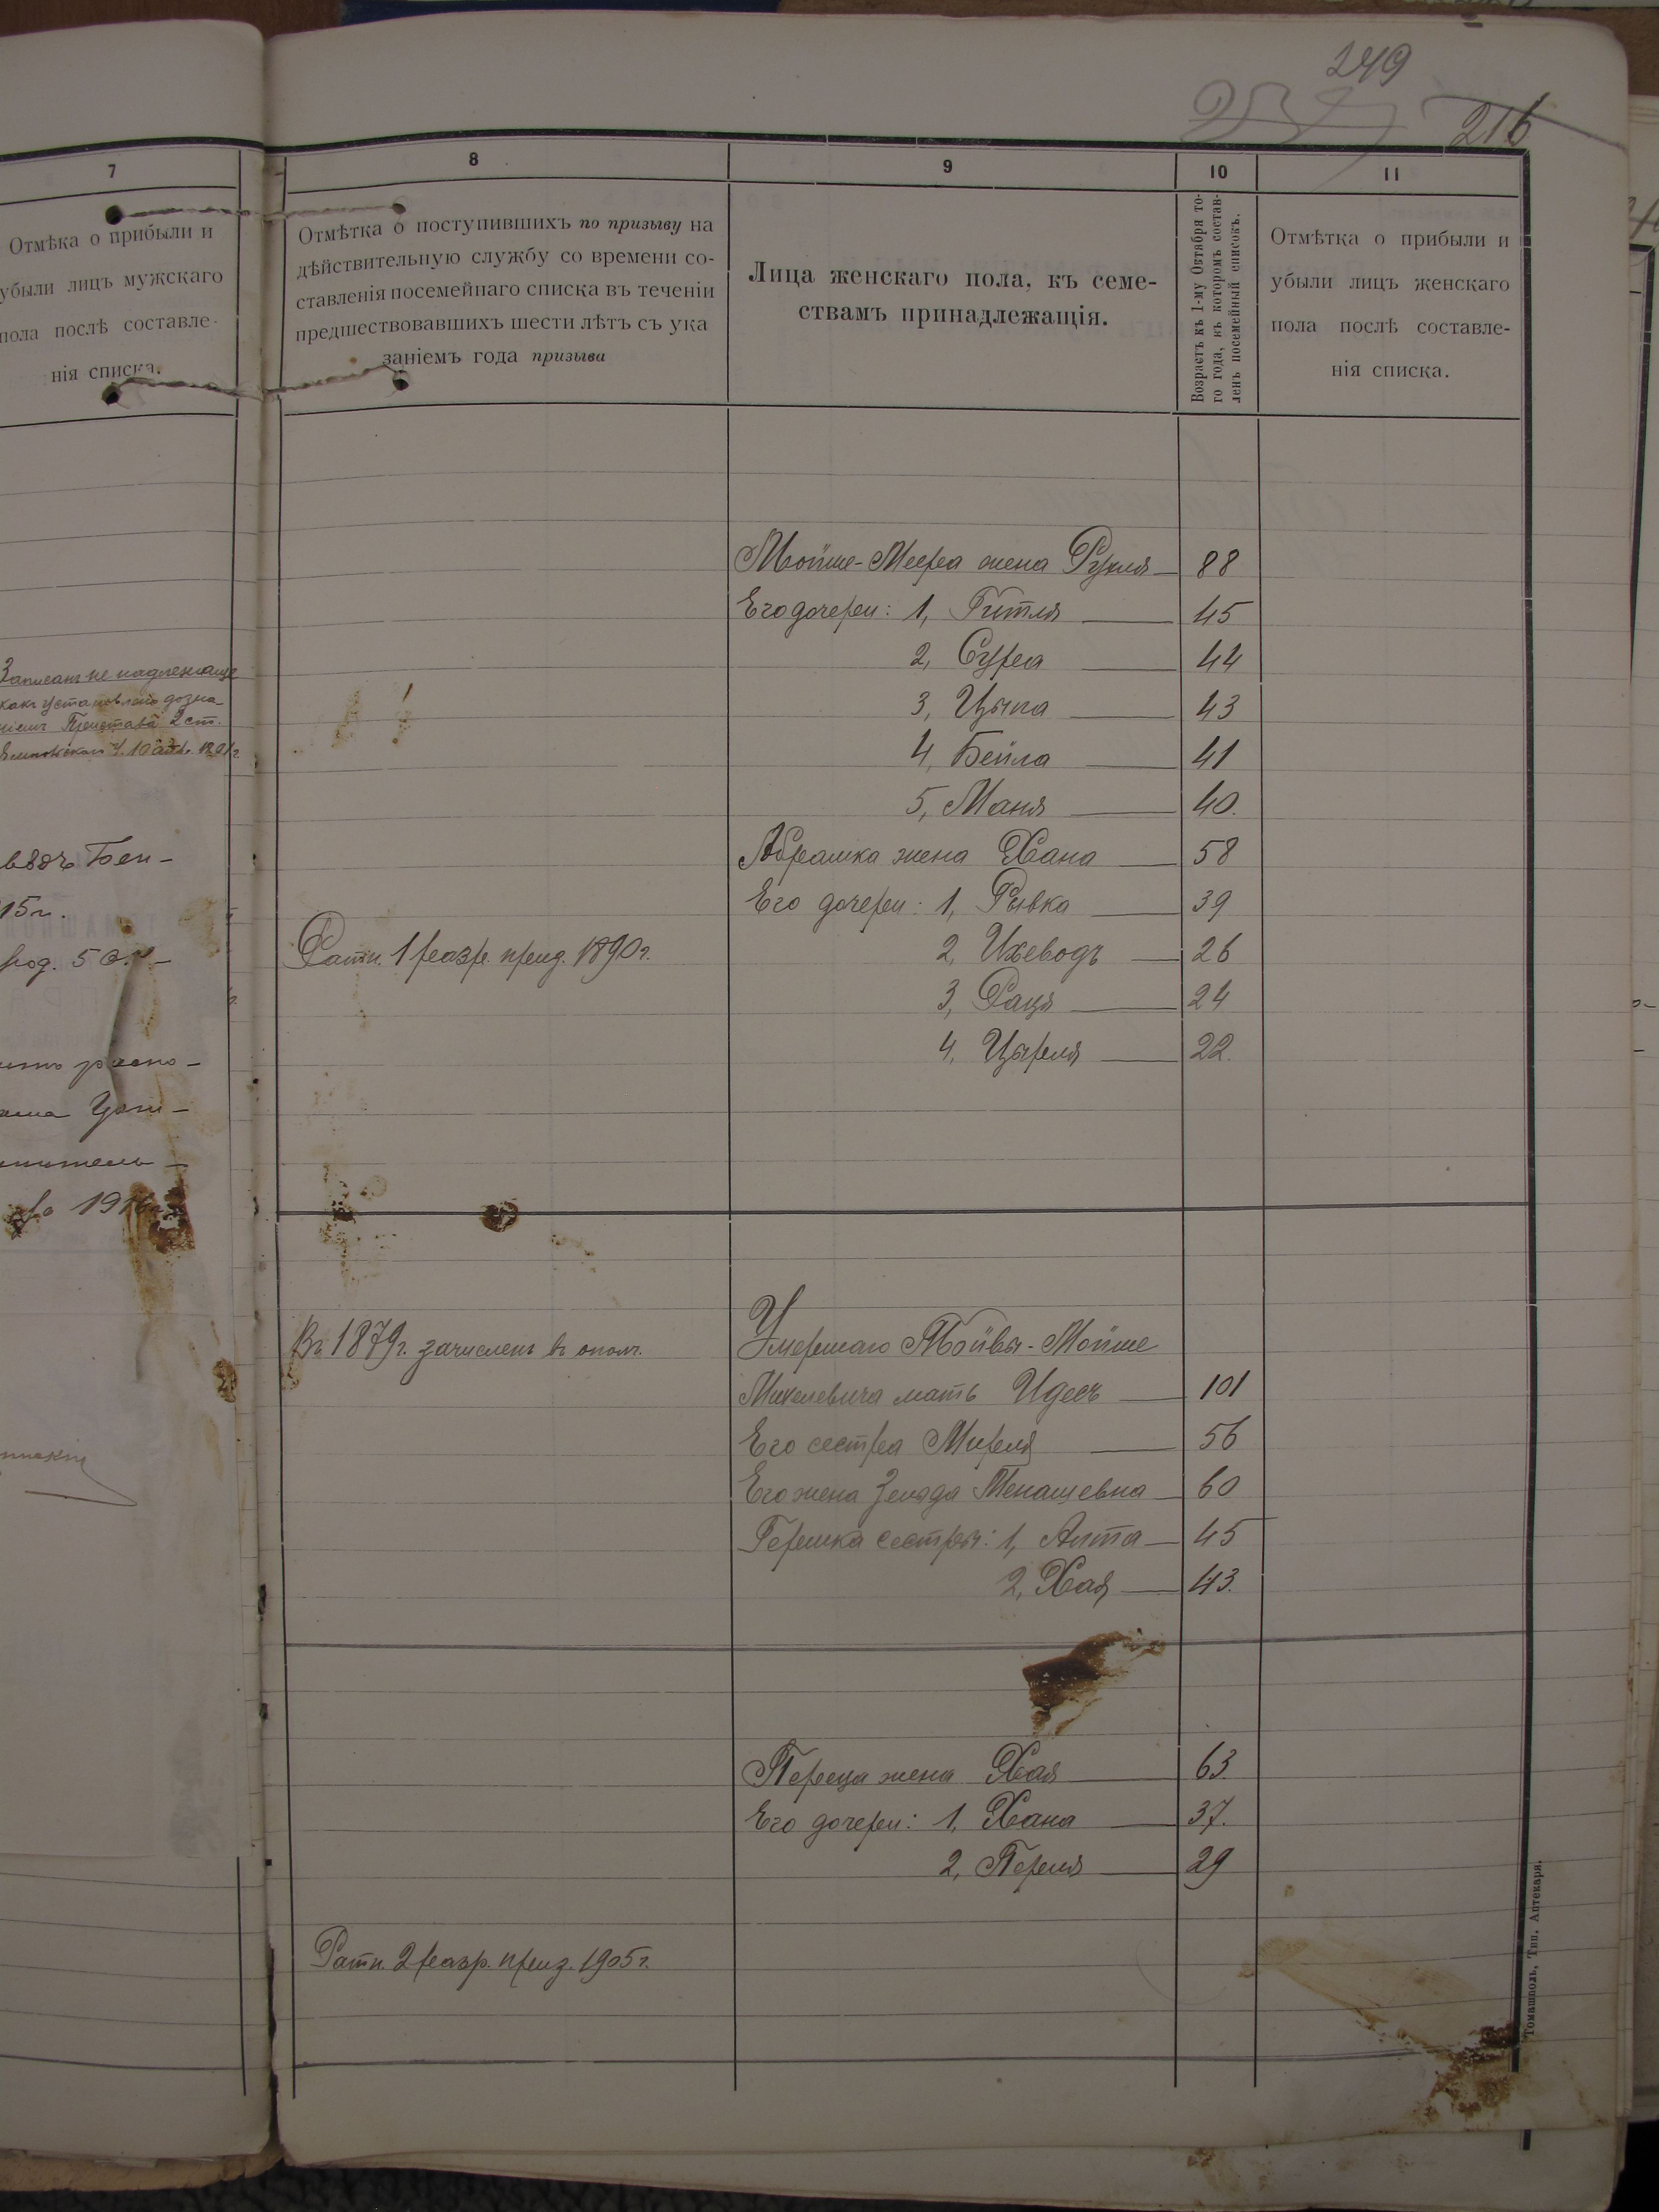 249
216
7
Отмѣка о прибыли и
убыли лицъ мужскаго
пола послѣ составле-
нія списка.
Записанъ не надлежаще
какъ установлено дозна-
ніемъ Пристава 2 ст.
15 г.
род. 50
1916 г.
8
Отмѣтка о поступившихъ по призыву на
дѣйствительную службу со времени со-
ставленія посемейнаго списка въ теченіи
предшествовавшихъ шести лѣтъ съ ука
заніемъ года призыва
Ратн. 1 разр. приз. 1890 г.
Въ 1879 г. зачисленъ въ ополч.
Ратн. 2 разр. приз. 1905 г.
9
Лица женскаго пола, къ семе-
ствамъ принадлежащія.
10
Возрастъ къ 1-му Октября то-
го года, къ которомъ состав-
ленъ посемейный списокъ.
11
Отмѣтка о прибыли и
убыли лицъ женскаго
пола послѣ составле-
нія списка.
Мойше-Меера жена Рухля 88
Его дочери: 1, Гитля 45
2, Сура 44
3, Цыпа 43
4, Бейла 41
5, Маня 40.
Абрамка жена Хана 58
Его дочери: 1, Рывка 39
2, Ихеводъ 26
3, Рация 24
4, Цыреля 22.
Умершаго Тойвы-Мойше
Михелевича мать Идесъ 101
Его сестра Миреля 56
Его жена Зельда Менашевна 60
Гершка сестры: 1, Алта 45
2, Хая 43.
Переца жена Хая 63
Его дочери: 1, Хана 37.
2, Переля 29
Томашполь, Тип. Аптекаря.